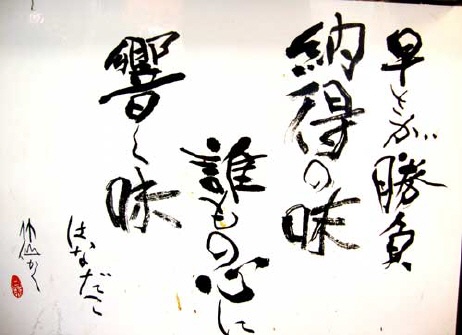 早さが勝負
納得の味
誰もの心に
響く味
はなだこ